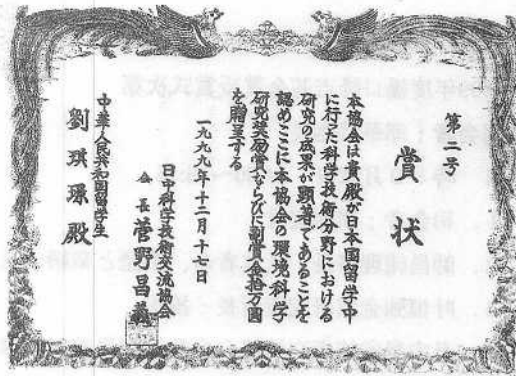 第二号
賞状
本協会は貴殿が日本国留学中
に行った科学技術分野における
研究の成果が顕著であることを
認めここに本協会の環境科学
研究奨励賞ならびに副賞金拾万円
を贈呈する
一九九九年十二月十七日
日中科学技術交流協会
会長 菅野昌義
中華人民共和国留学生
劉 琪 殿